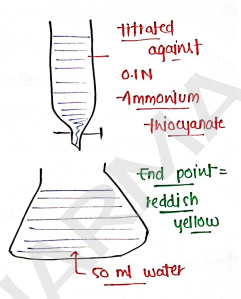 -titrated
against
0.1N
-Ammonium
-thiocyanate
-End point=
reddish
yellow
50 ml water